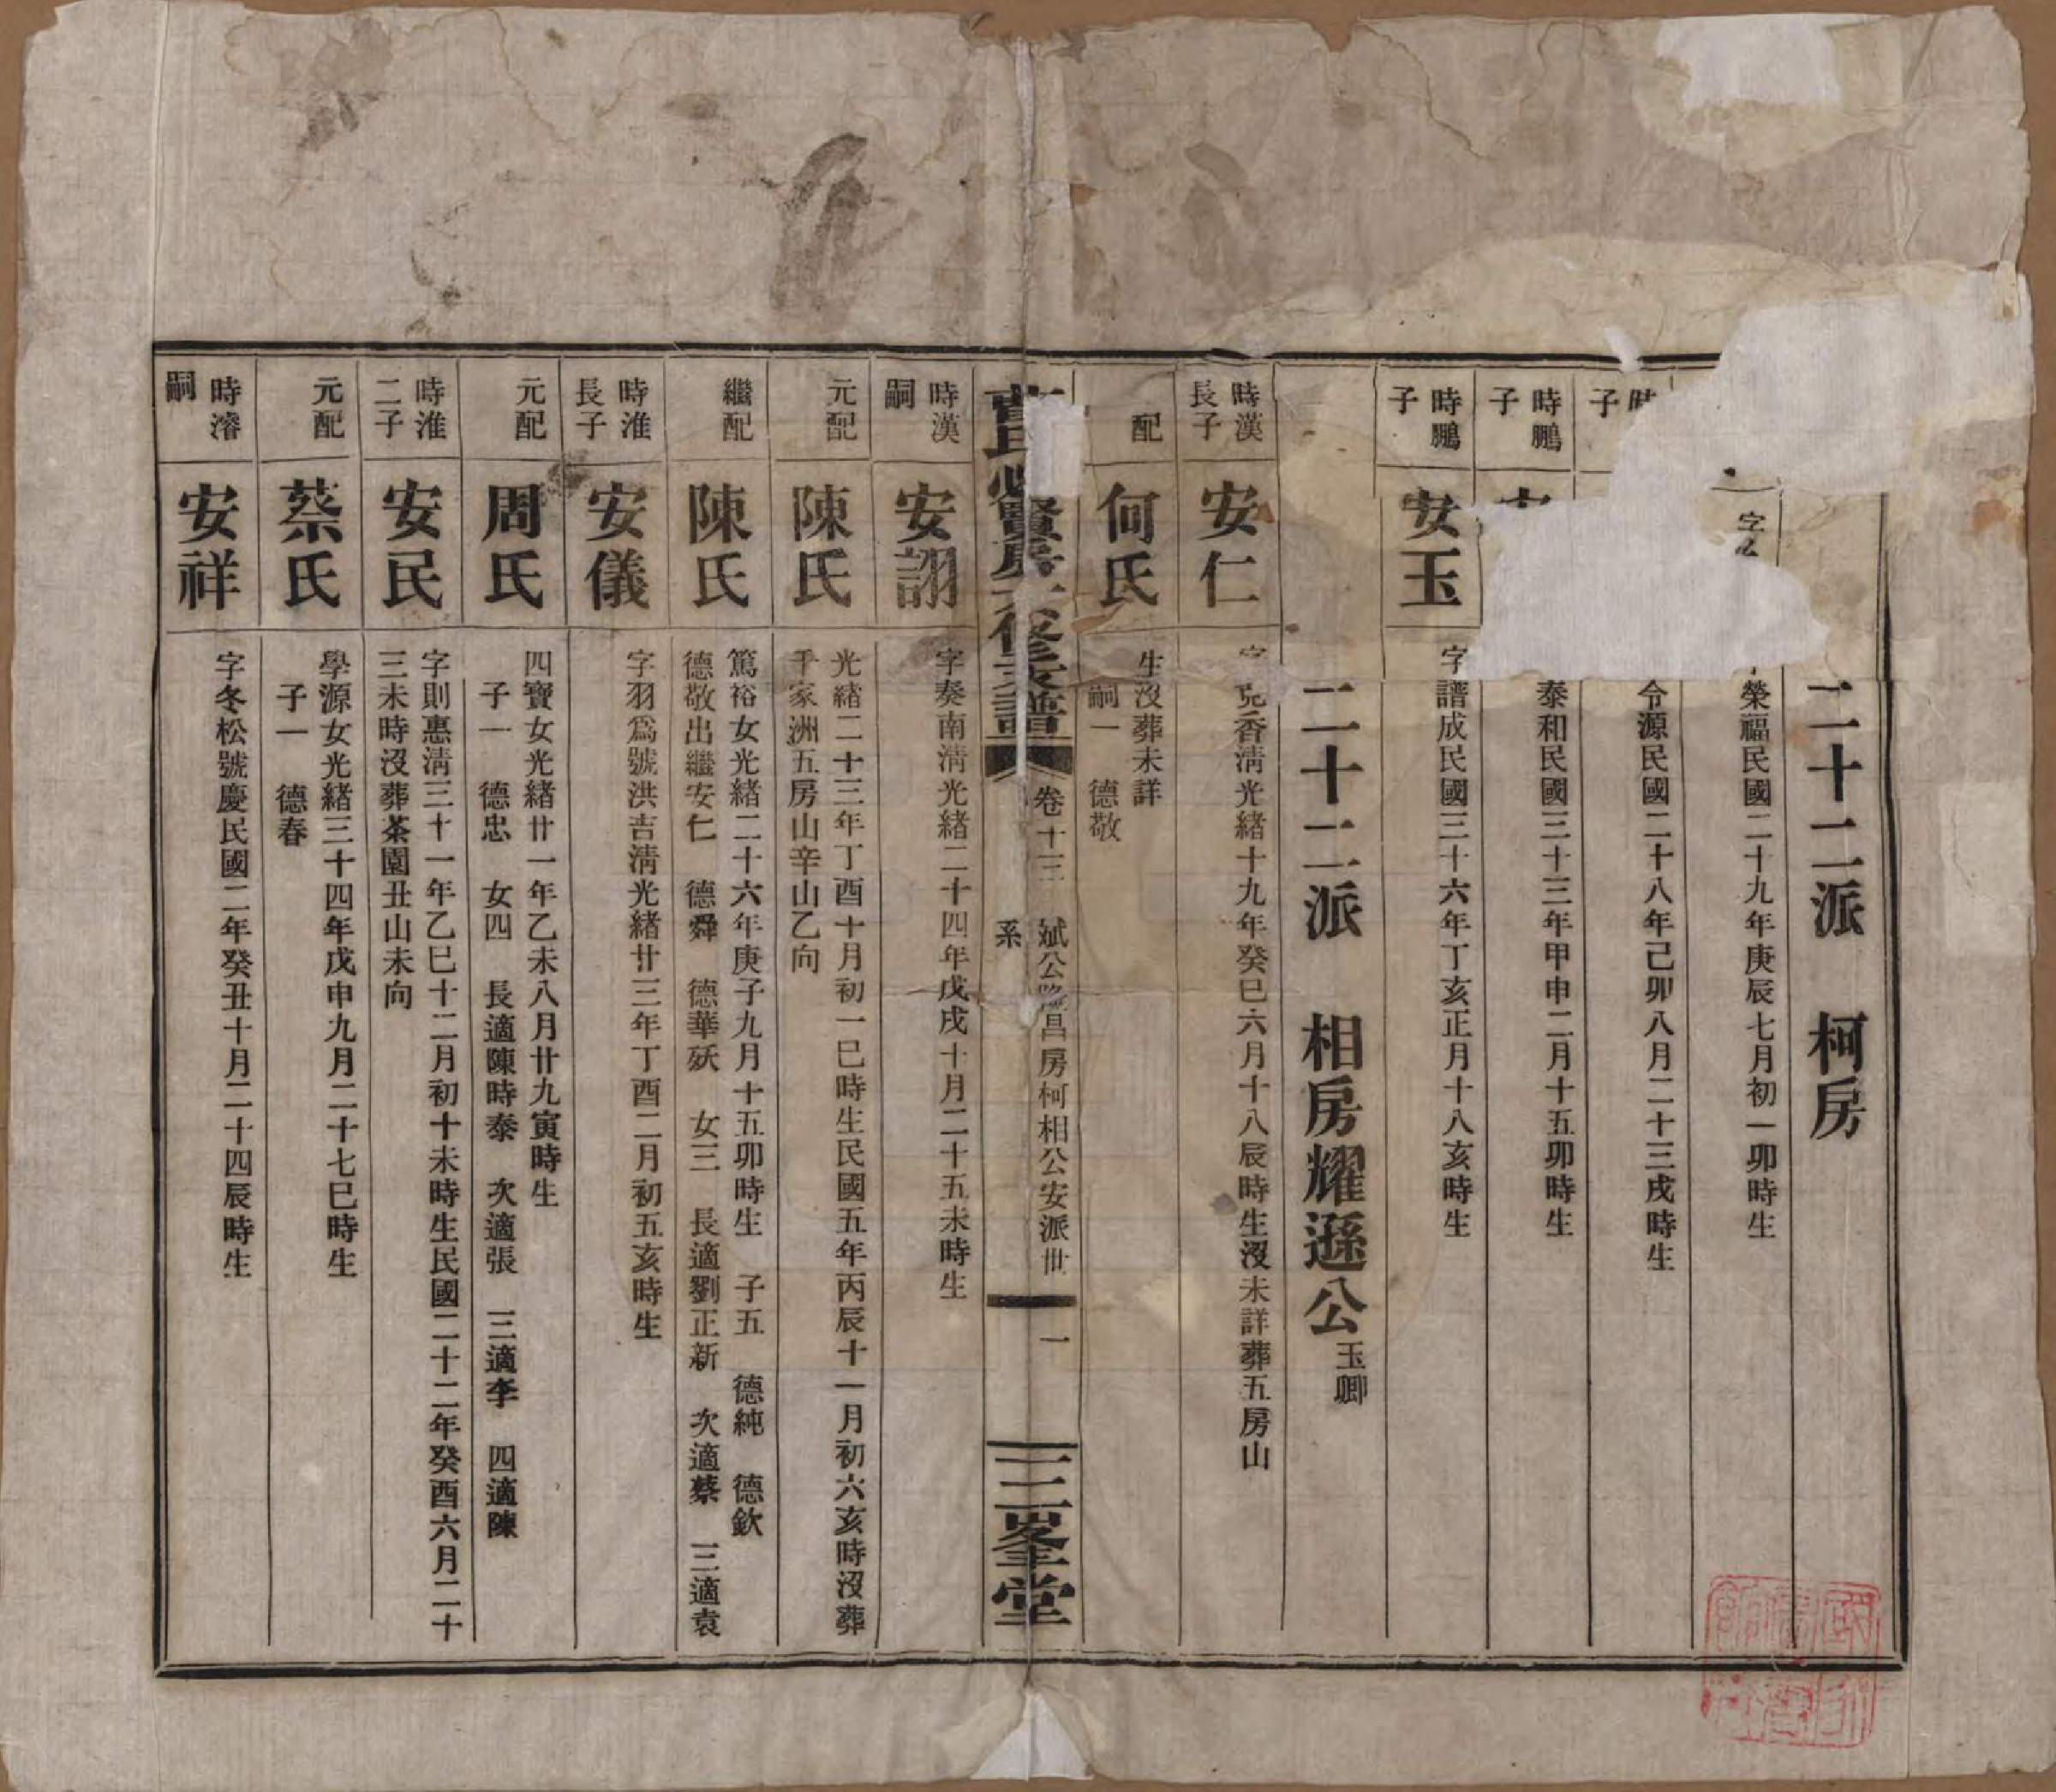 二十二派　柯房
字
榮福民國二十九年庚辰七月初一卯時生
子
令源民國二十八年己卯八月二十三戌時生
時鵬
子
泰和民國三十三年甲申二月十五卯時生
時鵬
子
安玉
字譜成民國三十六年丁亥正月十八亥時生
二十二派　相房耀遜公玉卿
時漢
長子
安仁
字克香淸光緒十九年癸巳六月十八辰時生沒未詳葬五房山
配
何氏
生沒葬未詳
嗣一　德敬
賢房　修支譜
卷十三
斌公　昌房柯相公安派世
系
一
三峯堂
時漢
嗣
安詡
字奏南淸光緒二十四年戊戌十月二十五未時生
元配
陳氏
光緒二十三年丁酉十月初一巳時生民國五年丙辰十一月初六亥時沒葬
千家洲五房山辛山乙向
繼配
陳氏
篤裕女光緒二十六年庚子九月十五卯時生　子五　德純　德欽
德敬出繼安仁　德舜　德華殀　女三　長適劉正新　次適蔡　三適袁
時淮
長子
安儀
字羽爲號洪吉淸光緒廿三年丁酉二月初五亥時生
元配
周氏
四寶女光緒廿一年乙未八月廿九寅時生
子一　德忠　女四　長適陳時泰　次適張　三適李　四適陳
時淮
二子
安民
字則惠淸三十一年乙巳十二月初十未時生民國二十二年癸酉六月二十
三未時沒葬茶園丑山未向
元配
蔡氏
學源女光緒三十四年戊申九月二十七巳時生
子一　德春
時濬
嗣
安祥
字冬松號慶民國二年癸丑十月二十四辰時生